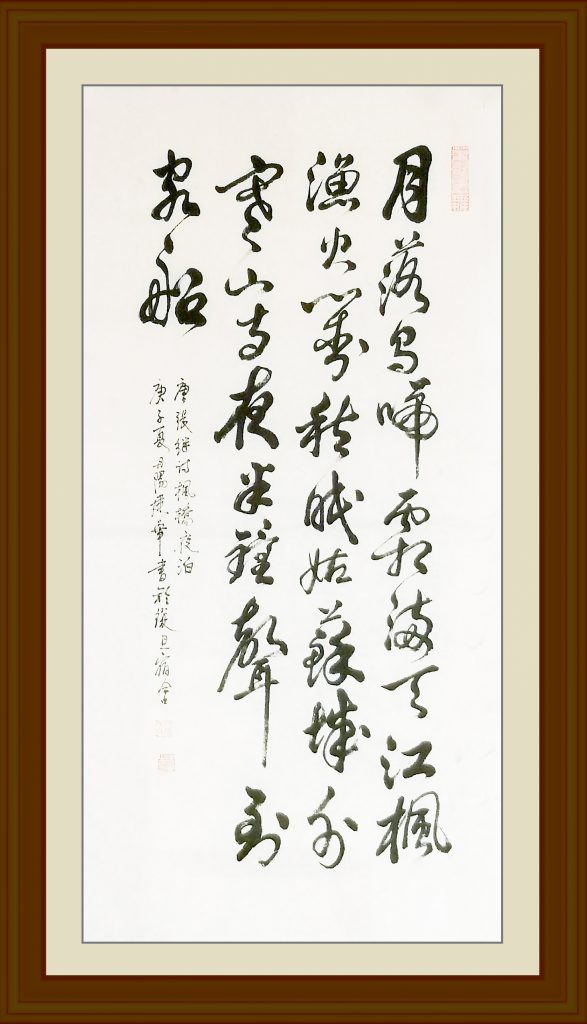 月落烏啼霜滿天江楓
漁火對愁眠姑蘇城外
寒山寺夜半鐘聲到
客船
唐張繼詩楓橋夜泊
庚子夏丹陽書於宿舍